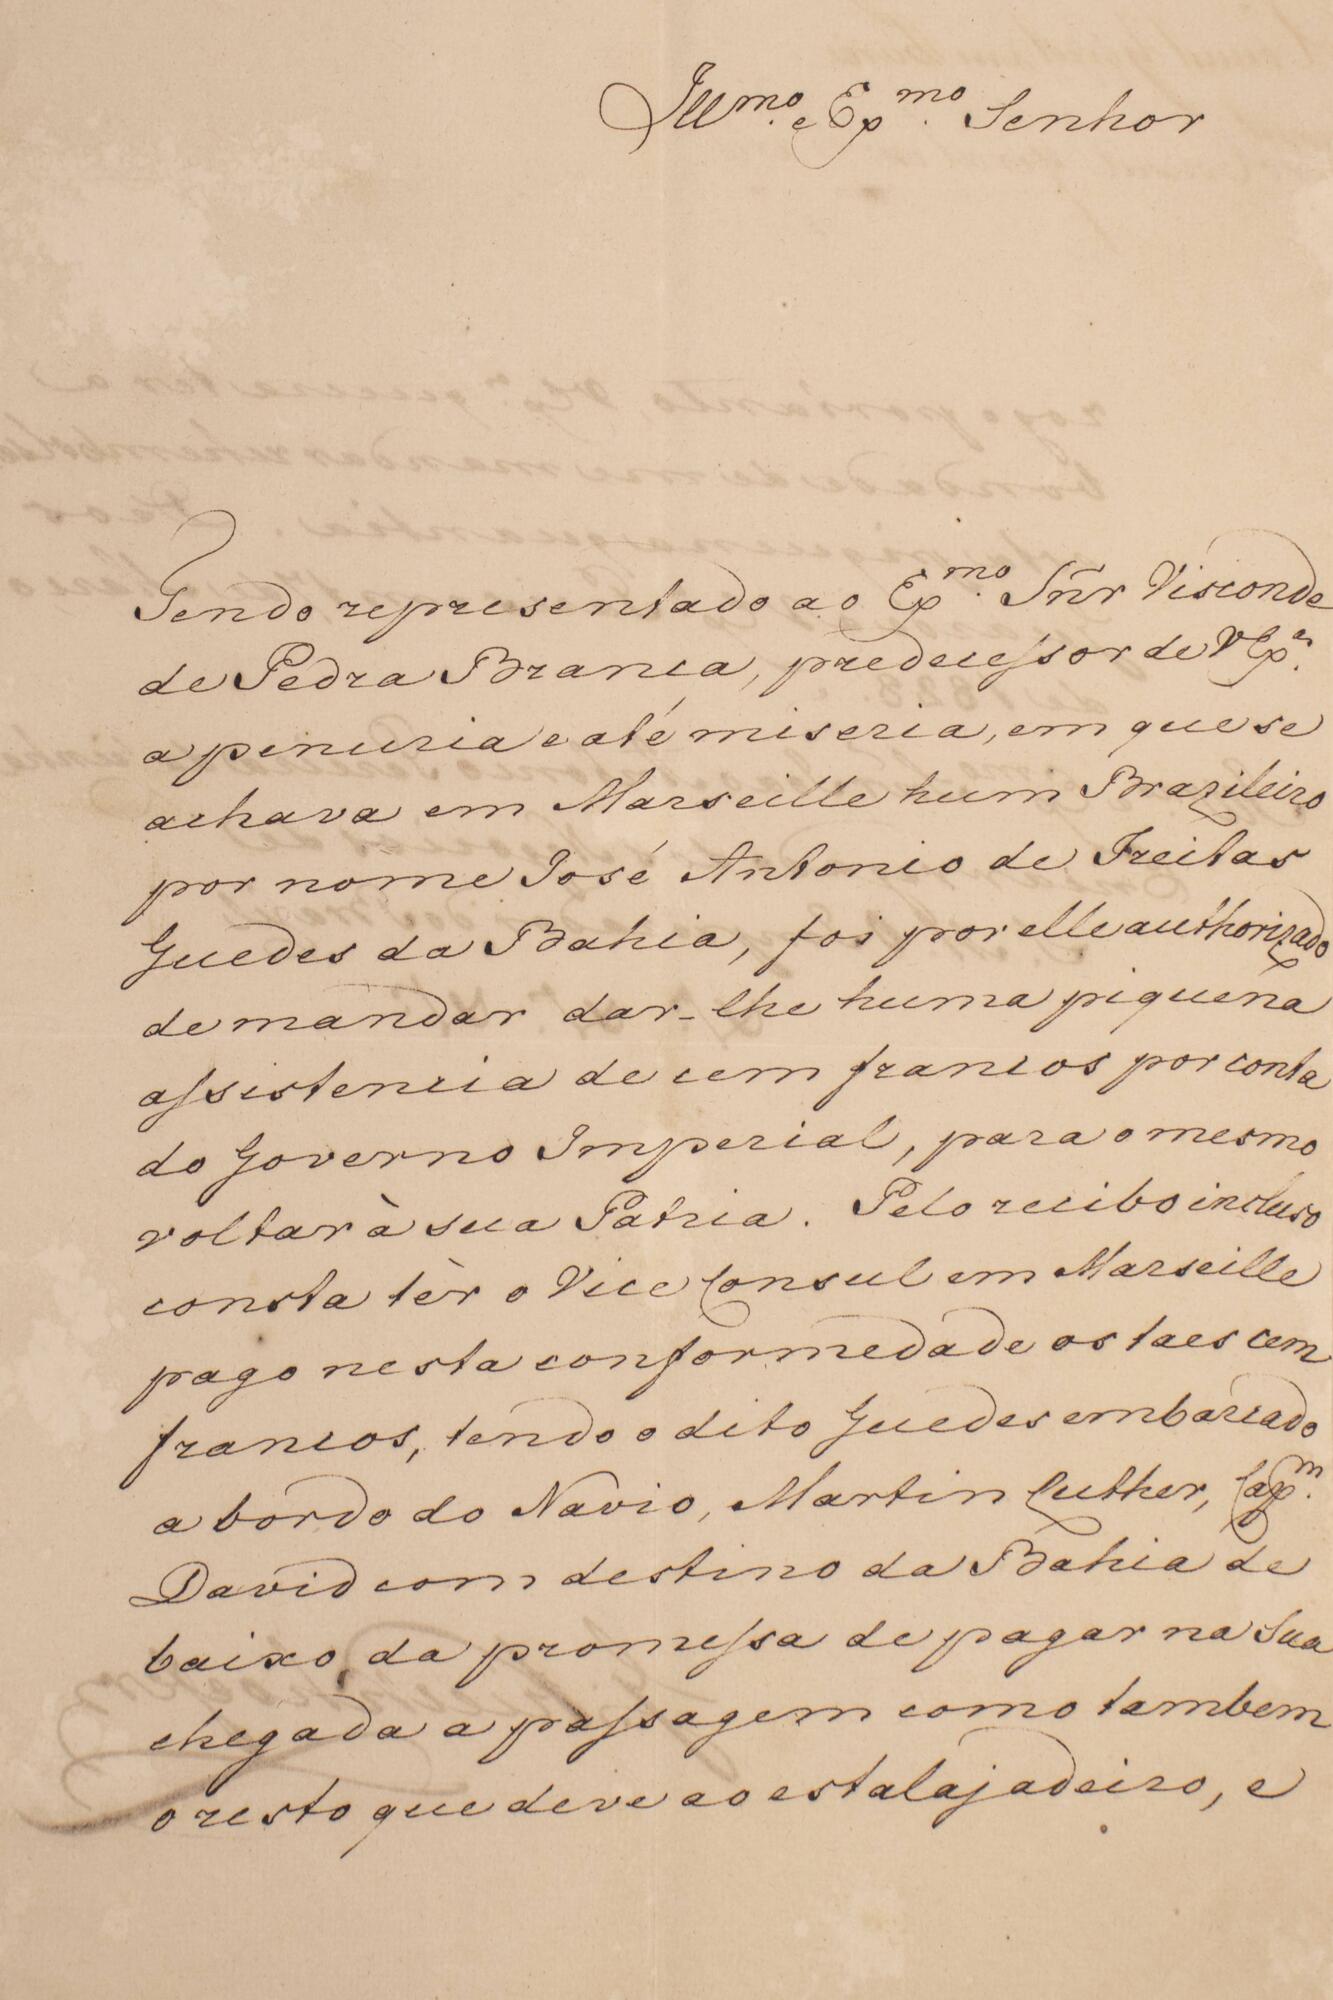 Illmo. e Exmo. Senhor
Tendo representado ao Exmo. Snr Visconde
de Pedra Branca, predecessor de VExa.
a penuria e até miseria, em que se
achava em Marseille hum Brazileiro
por nome José Antonio de Freitas
Guedes da Bahia, foi por elle authorizado
de mandar dar-lhe huma piquena
assistencia de cem francos por conta
do Governo Imperial, para o mesmo
voltar à sua Patria. Pelo recibo incluso
consta tèr o Vice Consul em Marseille
pago nesta conformedade os taes cem
francos, tendo o dito Guedes embarcado
a bordo do Navio, Martin Luther, Capm.
David com destino da Bahia de
baixo da promessa de pagar na Sua
chegada a passagem como tambem
o resto que deve ao estalajadeiro, e